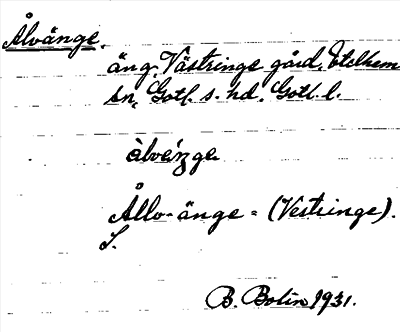 Ålvänge.
äng, Västringe gård, Etelhem
sn, Gotl. s. hd. Gotl. l.
àlvèŋge
Allv-änge = (Vestringe).
S.
B. Bolin 1931.